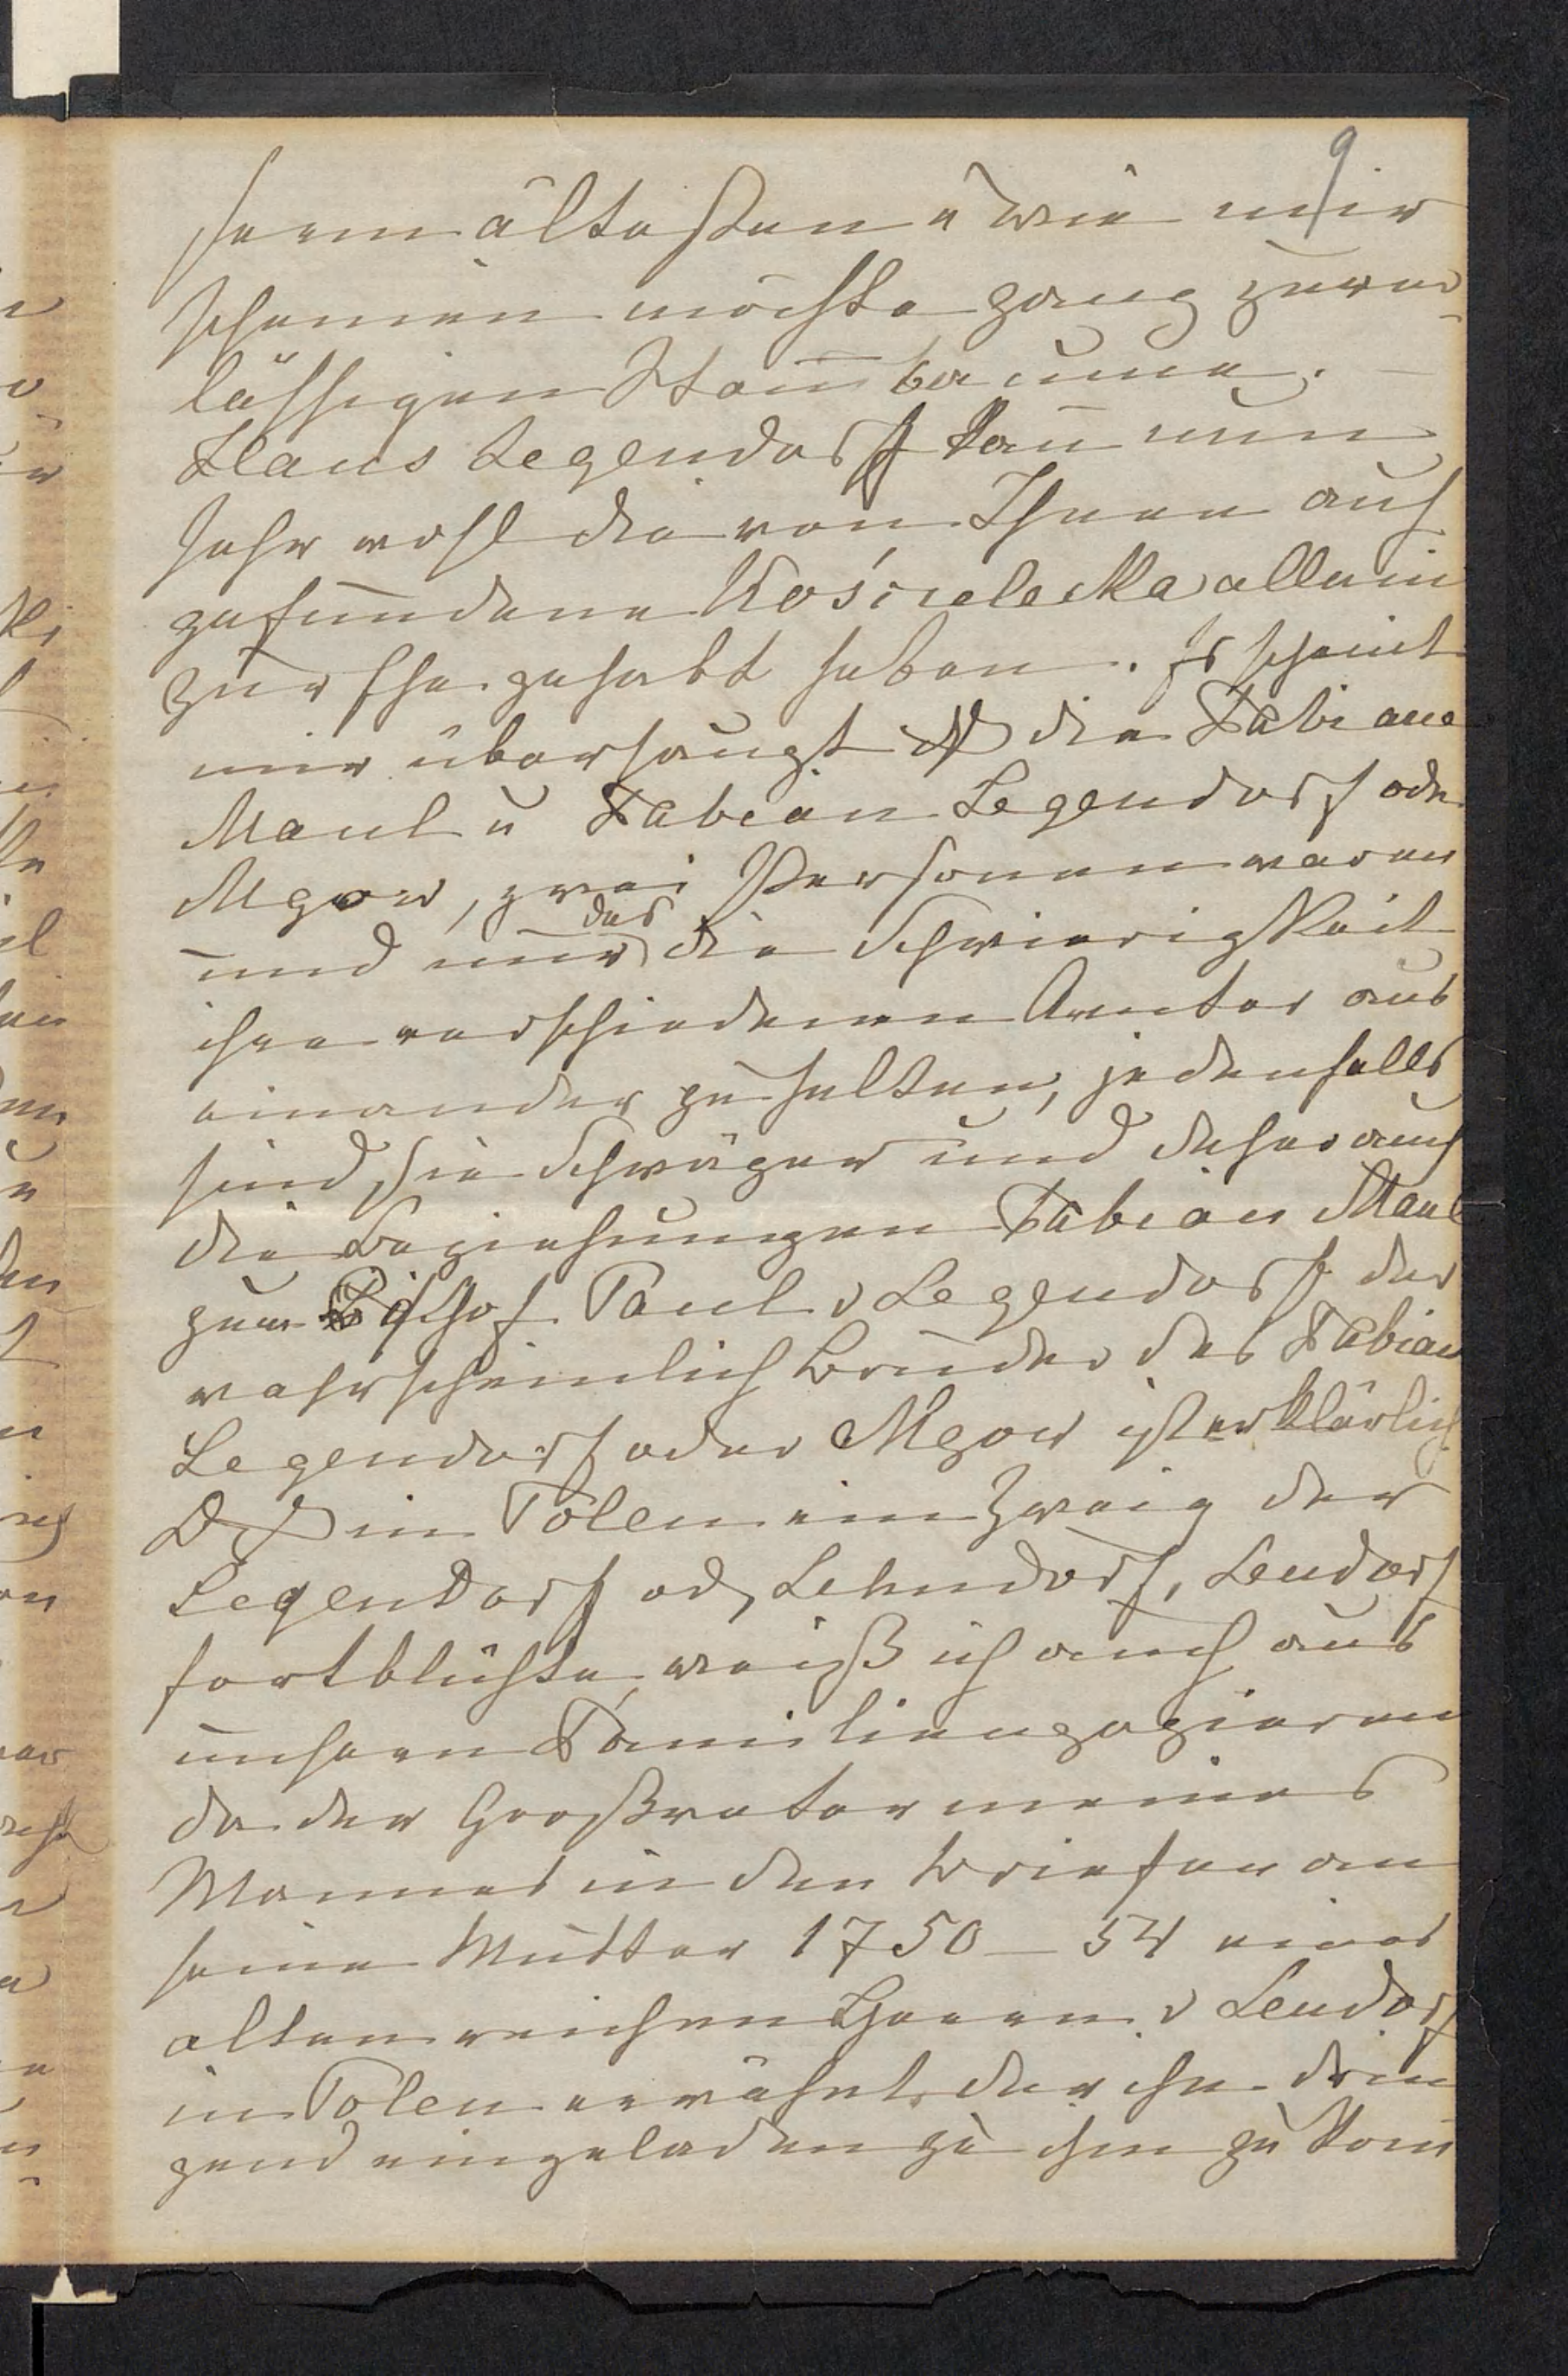 9
serem ältesten u wie mir
scheinen möchte ganz zuver-
lässigen Stam̅baume. —
Hans Legendorff kan̅ nun
sehr wohl die von Ihnen auf
gefundene Kościelecka allein
zur Ehe gehabt haben. Es scheint
mir überhaupt daß die Fabiane
Maul u Fabian Legendorf oder
Mgow, zwei Personen waren
und nur das die Schwierigkeit
ihre verschiedenen Aemter aus
einander zu halten, jedenfalls
sind sie Schwäger und daher auch
die Beziehungen Fabian Maul
zum Bischof Paul v Legendorff der
wahrscheinlich Bruder des Fabian
Legendorf oder Mgow ist erklärlich
Daß in Polen ein Zweig der
Legendorff od, Lehndorf, Lendorf
fortblühte, weiß ich auch aus
unseren Familienpapieren
da der Großvater meines
Mannes in den Briefen an
seine Mutter 1750 – 54 eines
alten reichen Herren v Lendorf
in Polen erwähnt, der ihn drin
gend eingeladen zu ihm zu kom̅